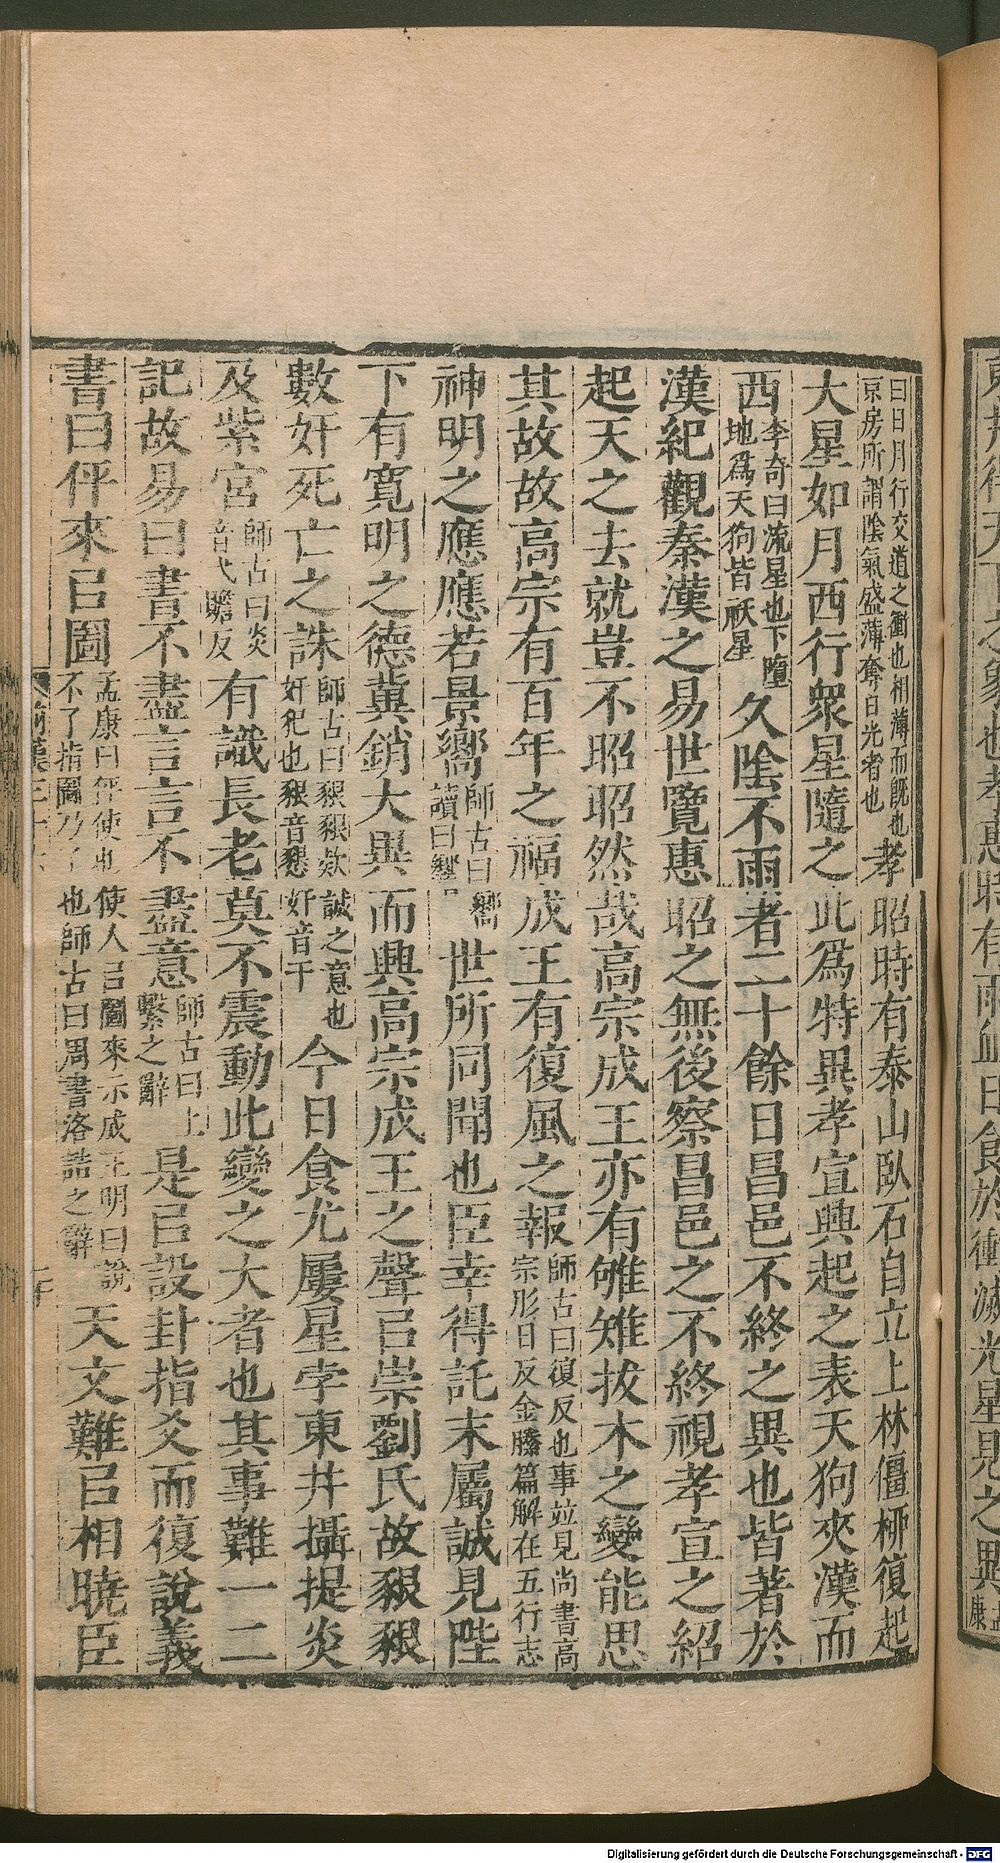 曰日月行交道之衝也相薄而旣也京房所謂陰氣盛薄奪日光者也孝昭時有泰山臥石自立上林僵柳復起
大星如月西行衆星隨之此爲特異孝宣興起之表天狗夾漢而
西李奇曰流星也下墮地爲天狗皆祅星久陰不雨者二十餘日昌邑不終之異也皆著於
漢紀觀秦漢之易世覽惠昭之無後察昌邑之不終視孝宣之紹
起天之去就豈不昭昭然哉高宗成王亦有雊雉拔木之變能思
其故故高宗有百年之福成王有復風之報師古曰復反也事竝見尚書高宗肜日反金縢篇解在五行志
神明之應應若景嚮師古曰嚮讀曰響世所同聞也臣幸得託末屬誠見陛
下有寬明之德冀銷大異而興高宗成王之聲㠯崇劉氏故豤豤
數奸死亡之誅師古曰豤豤欵誠之意也奸犯也豤音懇奸音干今日食尤屢星孛東井攝提炎
及紫宮師古曰炎音弋贍反有識長老莫不震動此變之大者也其事難一二
記故易曰書不盡言言不盡意師古曰上繫之辭是㠯設卦指爻而復說義
書曰伻來㠯圖孟康曰伻使也使人㠯圖來示成王明曰說不了指圖乃了也師古曰周書洛誥之辭天文難㠯相曉臣
前漢三十六
東井
之象也孝惠時有雨血日食於衝滅光星見之異孟康
Digitalisierung gefördert durch die Deutsche Forschungsgemeinschaft - DFG